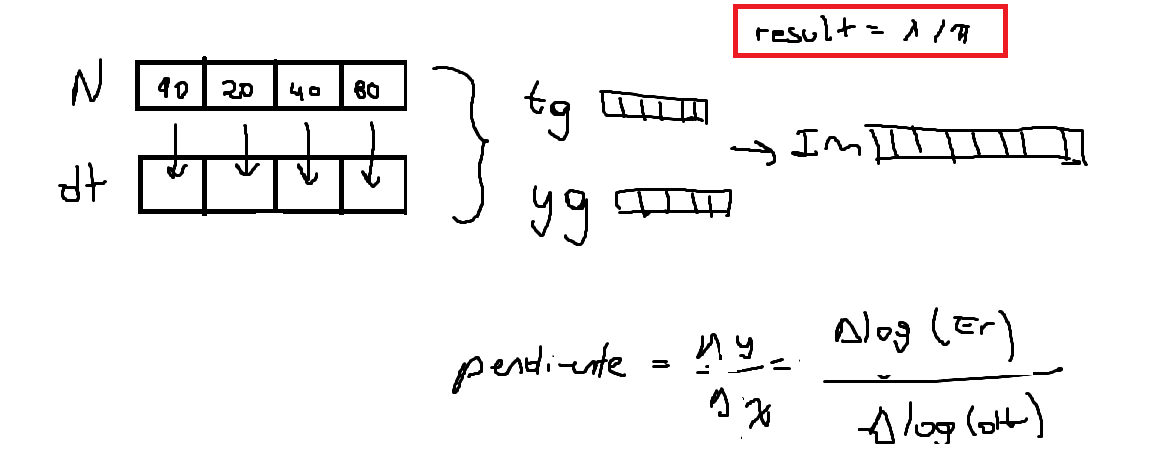 result = λ / π
N 10 20 40 80
dt
tg
yg
→ Im
pendiente = Δy / Δx = Δlog(Er) / Δlog(dt)